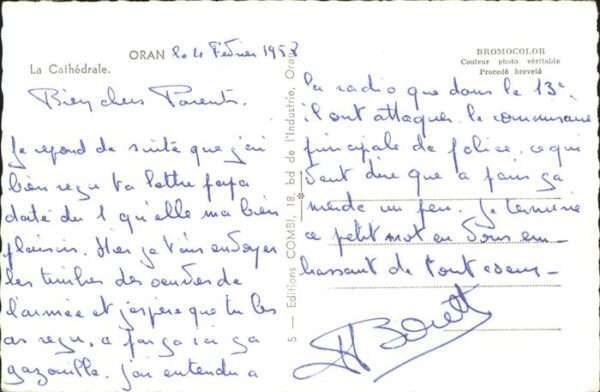 La Cathédrale.
ORAN le 4 Février 1958
BROMOCOLOR
Couleur photo véritable
Procédé breveté
5 — Editions COMBI, 18, bd de l'Industrie, Oran
Bien chers Parents.
Je repond de suite que j'ai
bien reçu ta lettre papa
daté du 1 qu'elle ma bien
plaisir. Hier je t'ais envoyer
les timbres des oeuvres de
l'armée et j'espère que tu les
as reçu, a ici ça
gazouille. j'ai entendu a
la radio que dans le 13e
il ont attaquer le commissariat
principale de police, ce qui
veut dire que a Paris ça
merde un peu. Je termine
ce petit mot en vous em-
brassant de tout coeur —